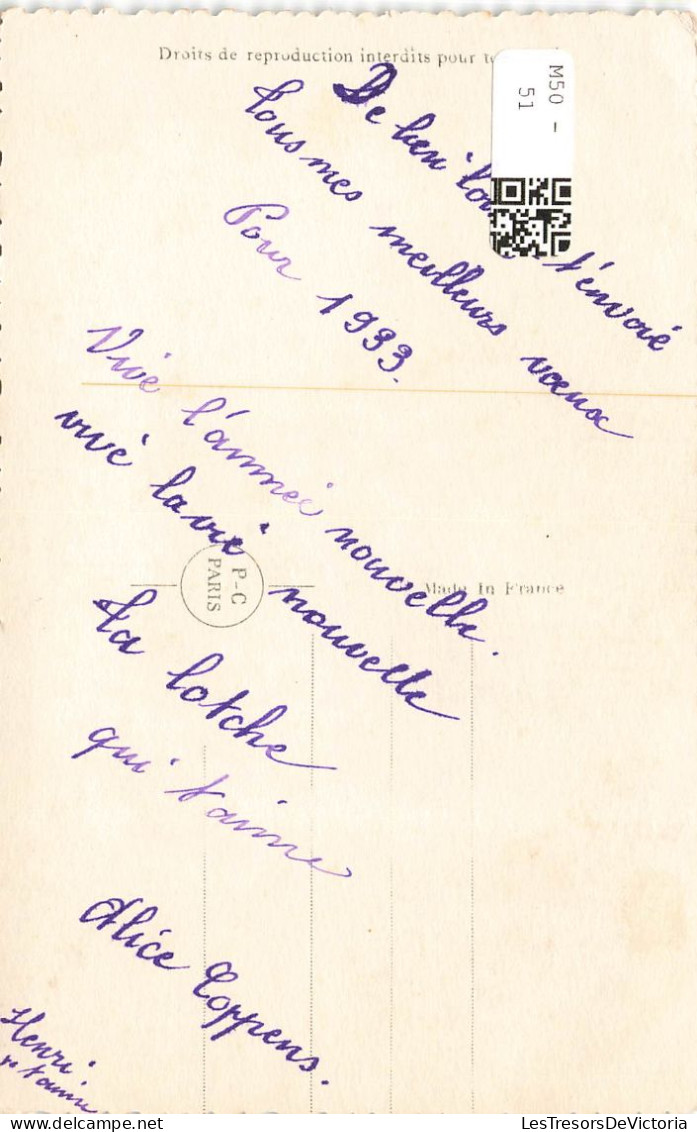 Droits de reproduction interdits pour
M50 -
51
De bien t'envoié
tous mes meilleurs vœux
Pour 1933.
Vivé l'anneé nouvelle.
vivé la vié nouvelle
ta lotche
qui t'aime
Alice Coppens.
Henri
P-C
PARIS
Made In France
LesTresorsDeVictoria